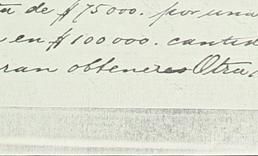 de $75000. por una
en $100000. cantid
ran obteneres Otra